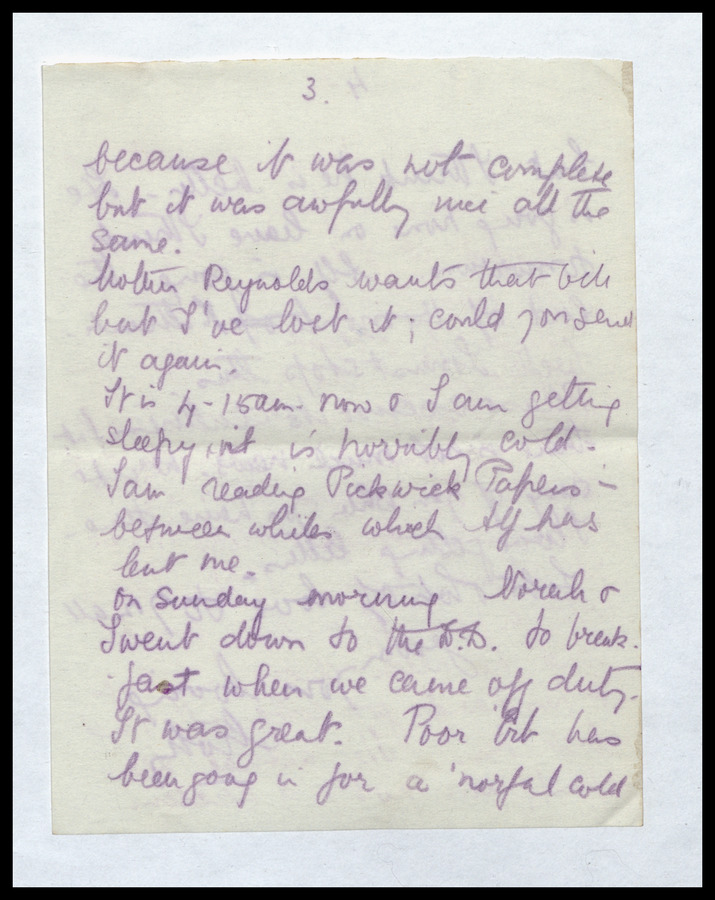 3.
because it was not complete
but it was awfully nice all the
same.
Mother Reynolds wants that bill
but I've lost it; could you send
it again.
It is 4-15am now & I am getting
sleepy, it is horribly cold.
I am reading Pickwick Papers -
between whiles which Alf has
lent me.
On Sunday morning Norah &
I went down to the D.D. to break-
fast when we came off duty.
It was great. Poor Brit has
been going in for a 'norful cold